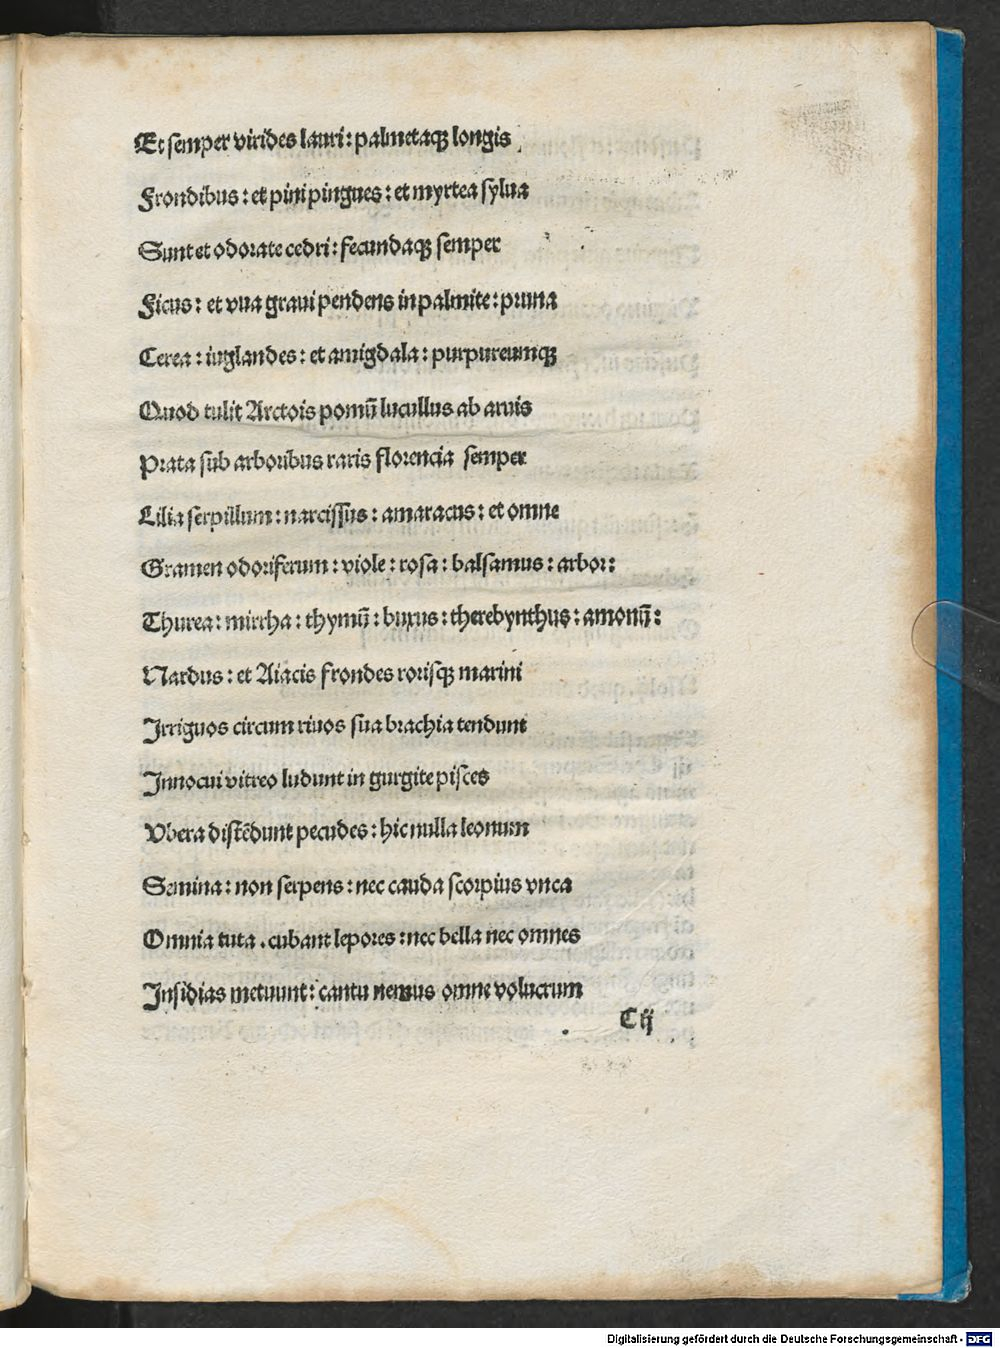 Et semper virides lauri: palmetaqꝫ longis
Frondibus: et pini pingues: et myrtea sylua
Sunt et odorate cedri: fecundaqꝫ semper
Ficus: et vua graui pendens in palmite: pruna
Cerea: iuglandes: et amigdala: purpureumqꝫ
Quod tulit Arctois pomū lucullus ab aruis
Prata sub arboribus raris florencia semper
Lilia serpillum: narcissus: amaracus: et omne
Gramen odoriferum: viole: rosa: balsamus: arbor:
Thurea: mirrha: thymū: buxus: therebynthus: amonū:
Nardus: et Aiacis frondes rorisqꝫ marini
Irriguos circum riuos sua brachia tendunt
Innocui vitreo ludunt in gurgite pisces
Vbera distēdunt pecudes: hic nulla leonum
Semina: non serpens: nec cauda scorpius vnca
Omnia tuta. cubant lepores: nec bella nec omnes
Insidias metuunt: cantu nemus omne volucrum
Cij
Digitalisierung gefördert durch die Deutsche Forschungsgemeinschaft - DFG